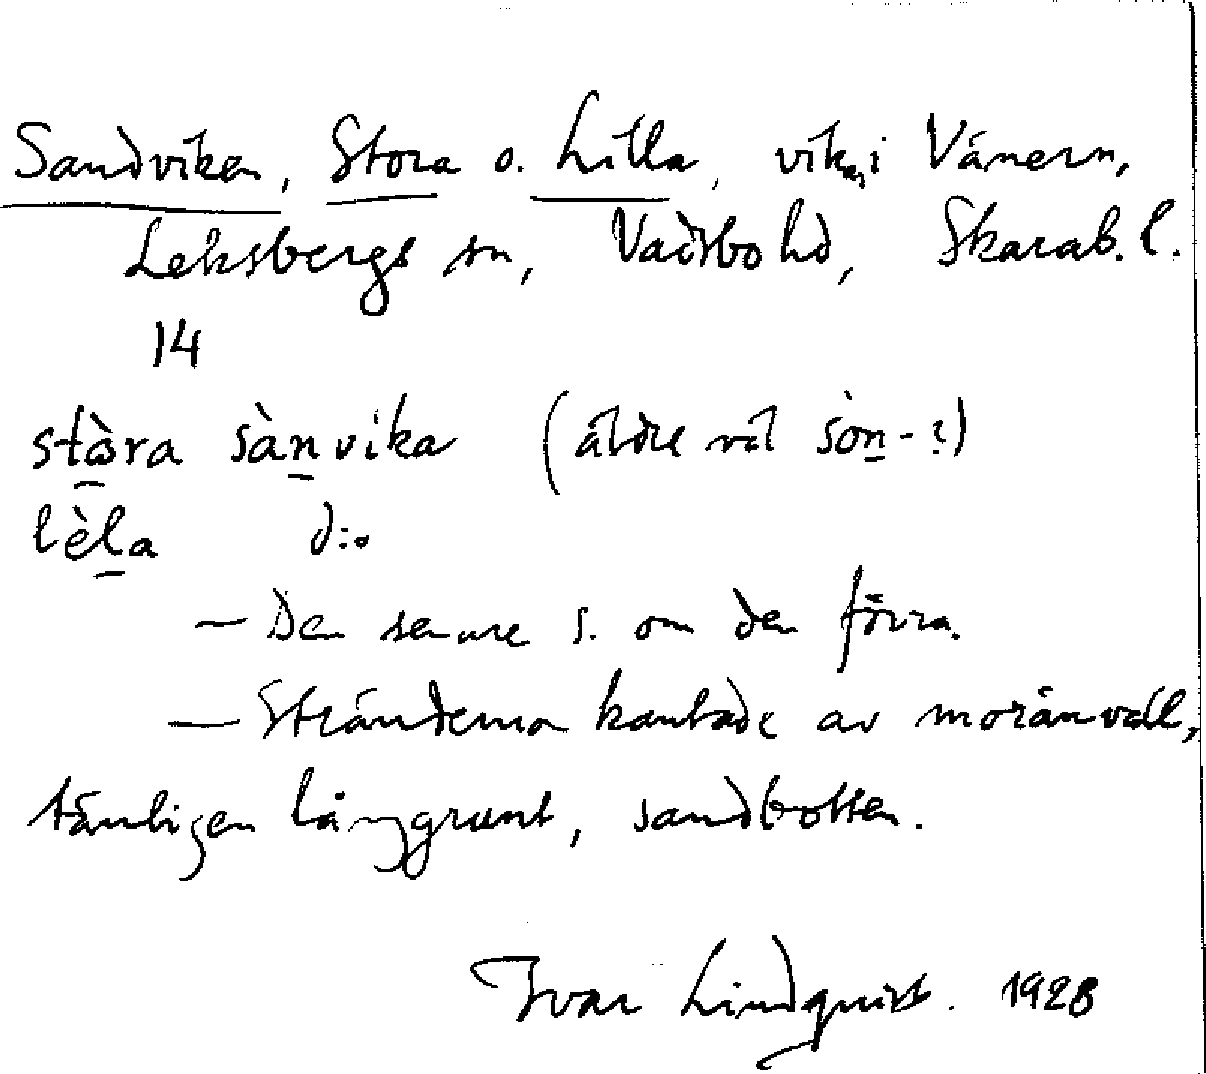 Sandviken, Stora o. Lilla, vik, i Vänern,
Leksbergs sn, Vadsbo hd, Skarab. l.
14
stòra sàn̲vika (äldre väl sòn̲-?)
lèl̲a d:o
— Den senare s. om den förra.
— Stränderna kantade av moränvall,
tämligen långgrunt, sandbotten.
Ivar Lindquist. 1928